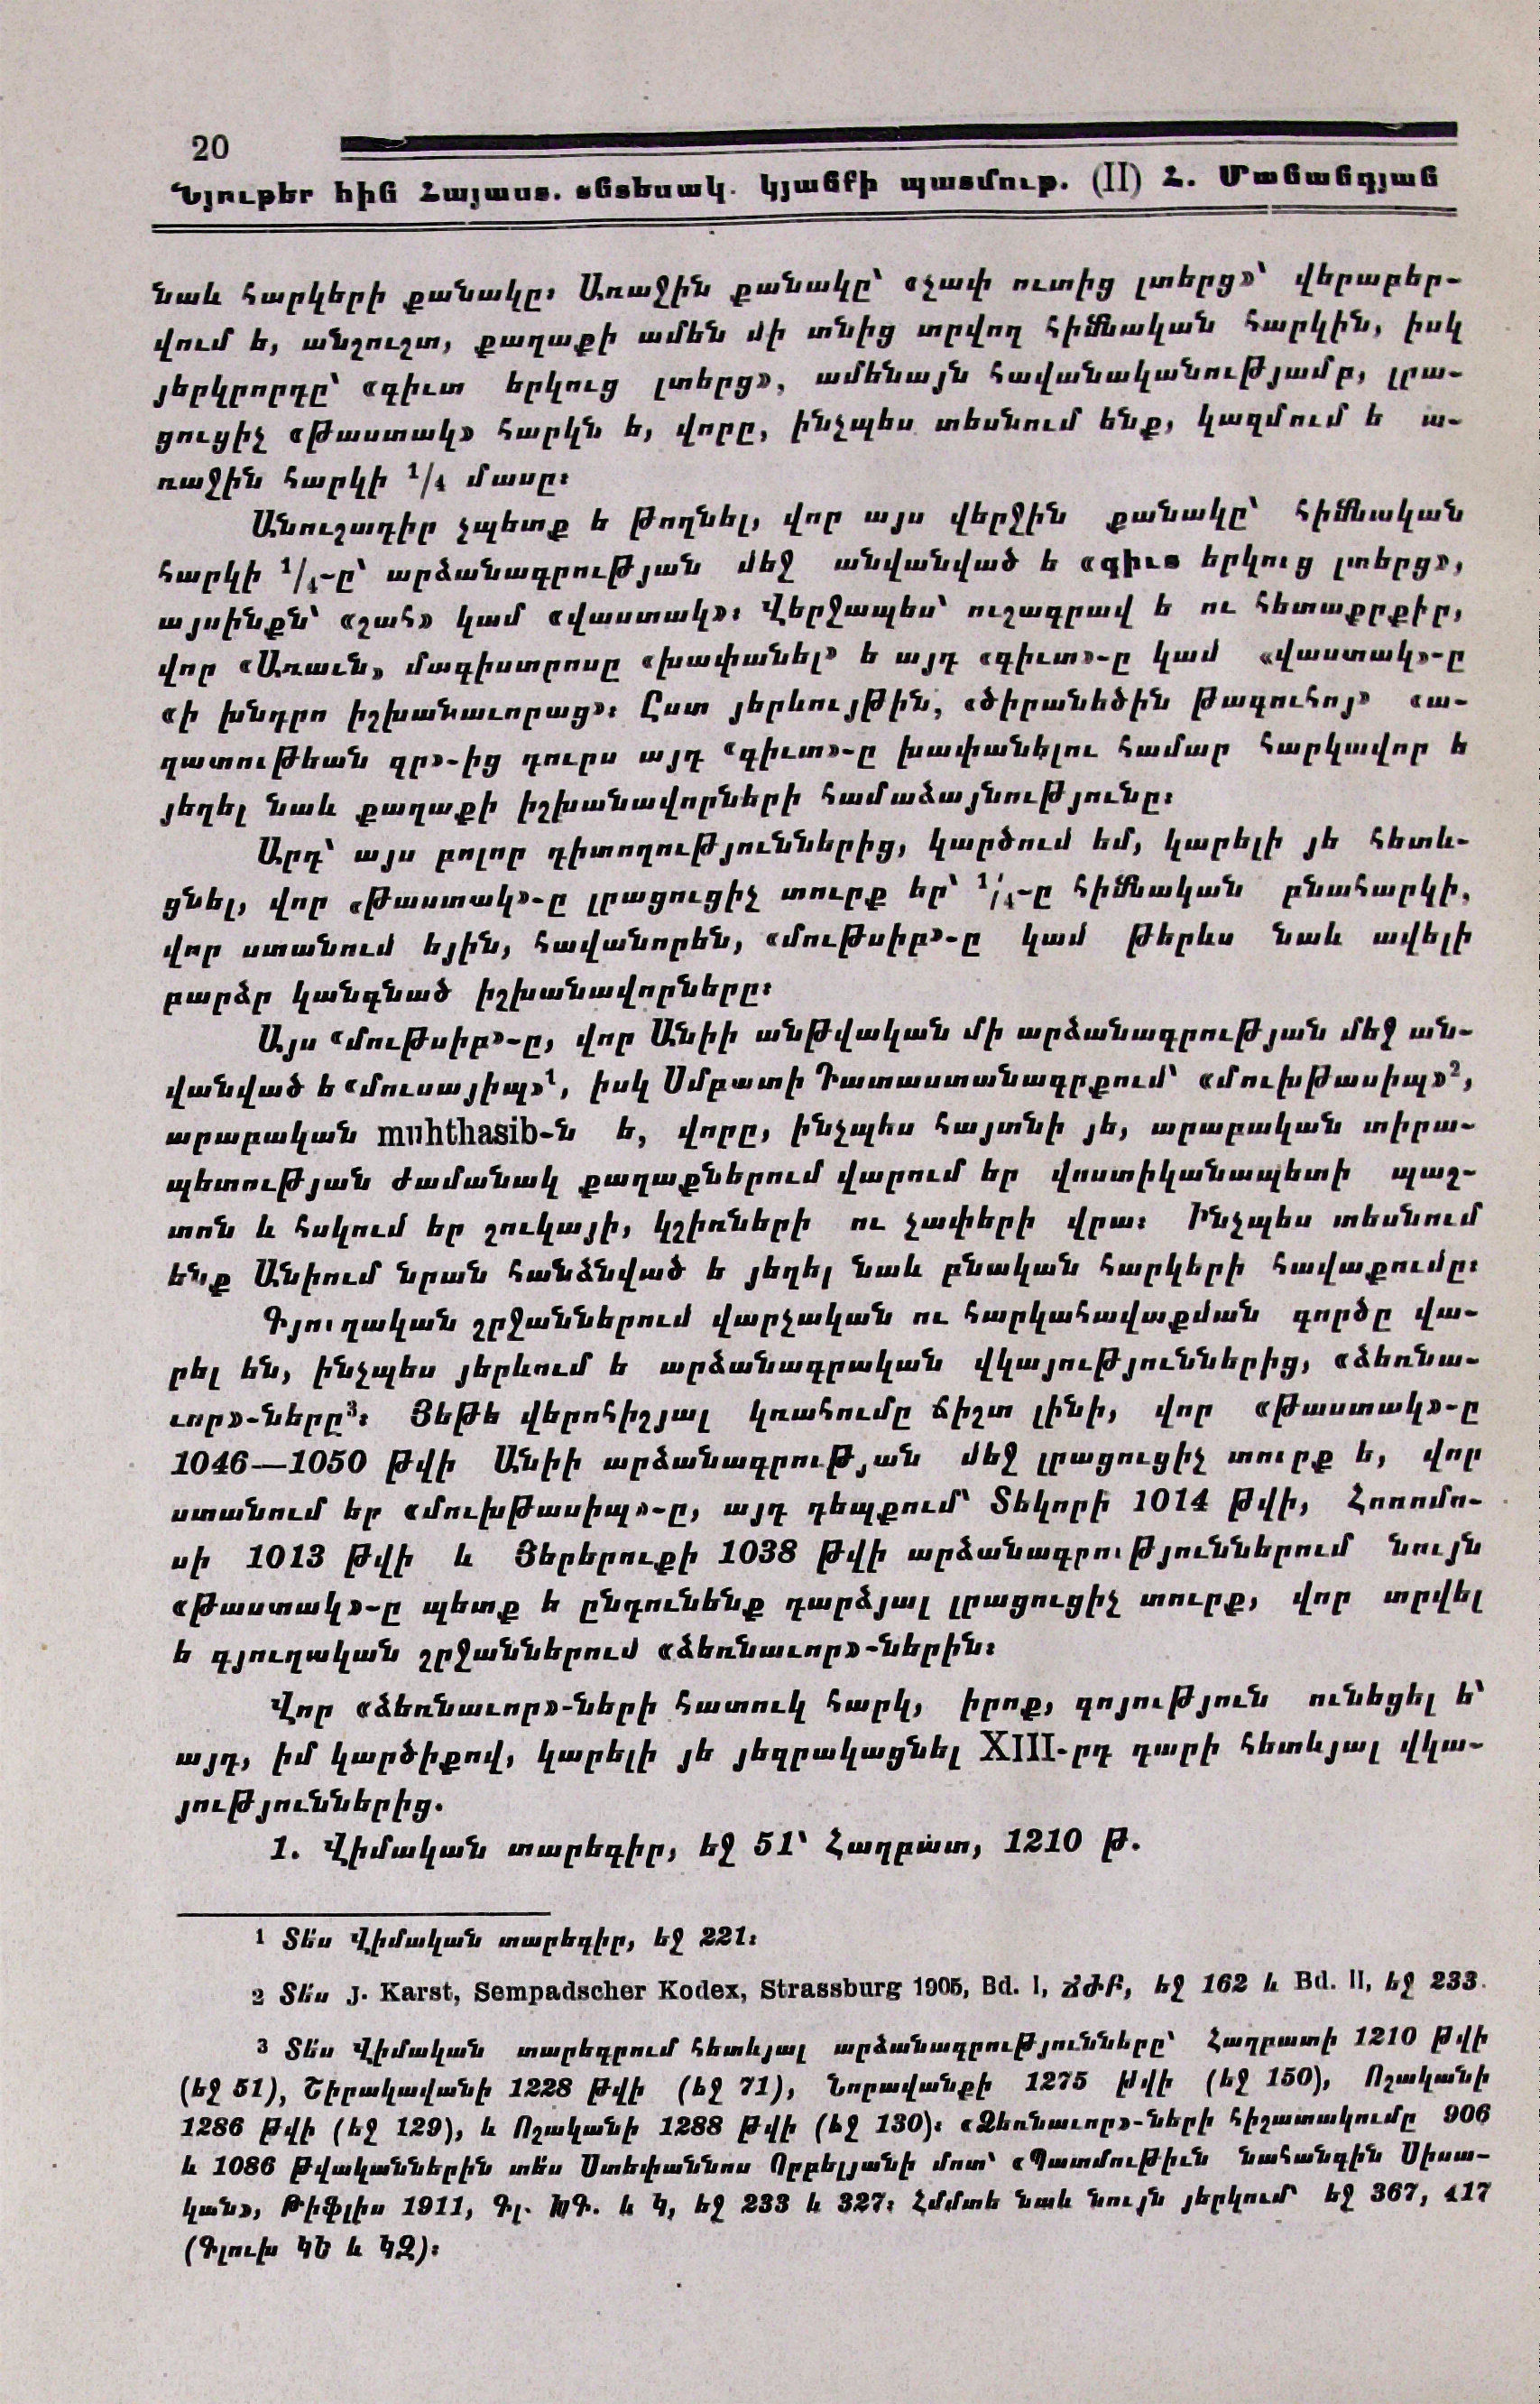 20
Նյութեր հին Հայաստ. տնտեսակ. կյանքի պատմութ. (II) Հ. Մանանդյան
նաև հարկերի քանակը։ Առաջին քանակը՝ «չափ ուտից լտերց»՝ վերաբեր-
վում ե, անշուշտ, քաղաքի ամեն մի տնից տրվող հիմնական հարկին, իսկ
յերկրորդը՝ «գիւտ երկուց լտերց», ամենայն հավանականությամբ, լրա-
ցուցիչ «թաստակ» հարկն ե, վորը, ինչպես տեսնում ենք, կազմում ե ա-
ռաջին հարկի ¹/₄ մասը։
Անուշադիր չպետք ե թողնել, վոր այս վերջին քանակը՝ հիմնական
հարկի ¹/₄-ը՝ արձանագրության մեջ անվանված ե «գիւտ երկուց լտերց»,
այսինքն՝ «շահ» կամ «վաստակ»։ Վերջապես՝ ուշագրավ ե ու հետաքրքիր,
վոր «Առաւն» մագիստրոսը «խափանել» ե այդ «գիւտ»-ը կամ «վաստակ»-ը
«ի խնդրո իշխանաւորաց»։ Ըստ յերևույթին, «ծիրանեծին թագուհոյ» «ա-
զատութեան գր»-ից դուրս այդ «գիւտ»-ը խափանելու համար հարկավոր ե
յեղել նաև քաղաքի իշխանավորների համաձայնությունը։
Արդ՝ այս բոլոր դիտողություններից, կարծում եմ, կարելի յե հետև-
ցնել, վոր «թաստակ»-ը լրացուցիչ տուրք եր՝ ¹/₄-ը հիմնական բնահարկի,
վոր ստանում եյին, հավանորեն, «մութսիբ»-ը կամ թերևս նաև ավելի
բարձր կանգնած իշխանավորները։
Այս «մութսիբ»-ը, վոր Անիի անթվական մի արձանագրության մեջ ան-
վանված ե «մուսայիպ»¹, իսկ Սմբատի Դատաստանագրքում՝ «մուխթասիպ»²,
արաբական muhthasib-ն ե, վորը, ինչպես հայտնի յե, արաբական տիրա-
պետության ժամանակ քաղաքներում վարում եր վոստիկանապետի պաշ-
տոն և հսկում եր շուկայի, կշիռների ու չափերի վրա։ Ինչպես տեսնում
ենք Անիում նրան հանձնված ե յեղել նաև բնական հարկերի հավաքումը։
Գյուղական շրջաններում վարչական ու հարկահավաքման գործը վա-
րել են, ինչպես յերևում ե արձանագրական վկայություններից, «ձեռնա-
ւոր»-ները³։ Յեթե վերոհիշյալ կռահումը ճիշտ լինի, վոր «թաստակ»-ը
1046—1050 թվի Անիի արձանագրության մեջ լրացուցիչ տուրք ե, վոր
ստանում եր «մուխթասիպ»-ը, այդ դեպքում՝ Տեկորի 1014 թվի, Հոռոմո-
սի 1013 թվի և Յերերուքի 1038 թվի արձանագրություններում նույն
«թաստակ»-ը պետք ե ընդունենք դարձյալ լրացուցիչ տուրք, վոր տրվել
ե գյուղական շրջաններում «ձեռնաւոր»-ներին։
Վոր «ձեռնաւոր»-ների հատուկ հարկ, իրոք, գոյություն ունեցել ե՝
այդ, իմ կարծիքով, կարելի յե յեզրակացնել XIII-րդ դարի հետևյալ վկա-
յություններից.
1. Վիմական տարեգիր, եջ 51՝ Հաղբատ, 1210 թ.
1 Տե՛ս Վիմական տարեգիր, եջ 221։
2 Տե՛ս J. Karst, Sempadscher Kodex, Strassburg 1905, Bd. I, ՃԺԲ, եջ 162 և Bd. II, եջ 233.
3 Տե՛ս Վիմական տարեգրում հետևյալ արձանագրությունները՝ Հաղբատի 1210 թվի
(եջ 51), Շիրակավանի 1228 թվի (եջ 71), Նորավանքի 1275 թվի (եջ 150), Ոշականի
1286 թվի (եջ 129), և Ոշականի 1288 թվի (եջ 130)։ «Ձեռնաւոր»-ների հիշատակումը 906
և 1086 թվականներին տե՛ս Ստեփաննոս Որբելյանի մոտ՝ «Պատմութիւն նահանգին Սիսա-
կան», Թիֆլիս 1911, Գլ. ԽԳ. և Կ, եջ 233 և 327։ Հմմտե նաև նույն յերկում՝ եջ 367, 417
(Գլուխ ԿԵ և ԿԶ)։